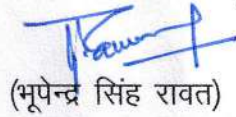 (भूपेन्द्र सिंह रावत)